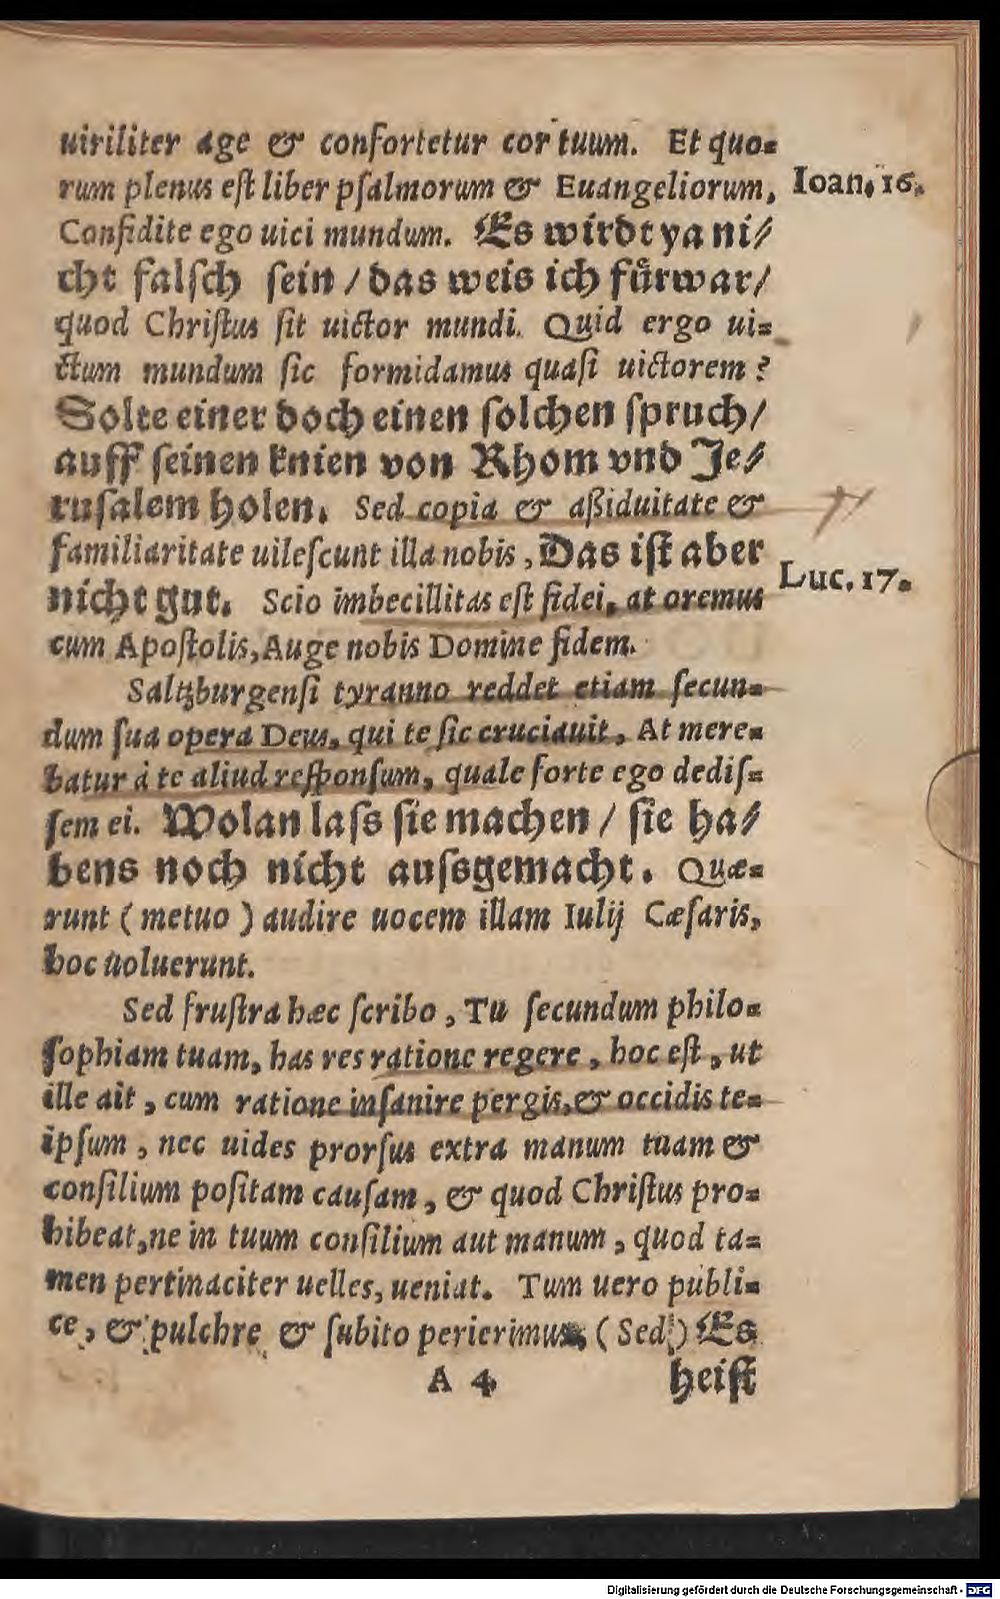 uiriliter age & confortetur cor tuum. Et quo=
rum plenus eſt liber pſalmorum & Euangeliorum,
Ioan. 16.
Confidite ego uici mundum. Es wirdt ya ni/
cht falſch ſein / das weis ich fürwar/
quod Chriſtus ſit uictor mundi. Quid ergo ui=
ctum mundum ſic formidamus quaſi uictorem?
Solte einer doch einen ſolchen ſpruch/
auff ſeinen knien von Rhom vnd Je/
ruſalem holen. Sed copia & aßiduitate &
familiaritate uileſcunt illa nobis, Das iſt aber
Luc. 17.
nicht gut. Scio imbecillitas eſt fidei, at oremus
cum Apoſtolis, Auge nobis Domine fidem.
Saltzburgenſi tyranno reddet etiam ſecun=
dum ſua opera Deus, qui te ſic cruciauit, At mere=
batur à te aliud reſponſum, quale forte ego dediſ=
ſem ei. Wolan laſs ſie machen / ſie ha/
bens noch nicht auſsgemacht. Quæ=
runt ( metuo ) audire uocem illam Iulij Cæſaris,
hoc uoluerunt.
Sed fruſtra hæc ſcribo, Tu ſecundum philo=
ſophiam tuam, has res ratione regere, hoc eſt, ut
ille ait, cum ratione inſanire pergis, & occidis te=
ipſum, nec uides prorſus extra manum tuam &
conſilium poſitam cauſam, & quod Chriſtus pro=
hibeat, ne in tuum conſilium aut manum, quod ta=
men pertinaciter uelles, ueniat. Tum uero publi=
ce, & pulchre & ſubito perierimus, ( Sed ) Es
A 4 heiſt
Digitalisierung gefördert durch die Deutsche Forschungsgemeinschaft - DFG